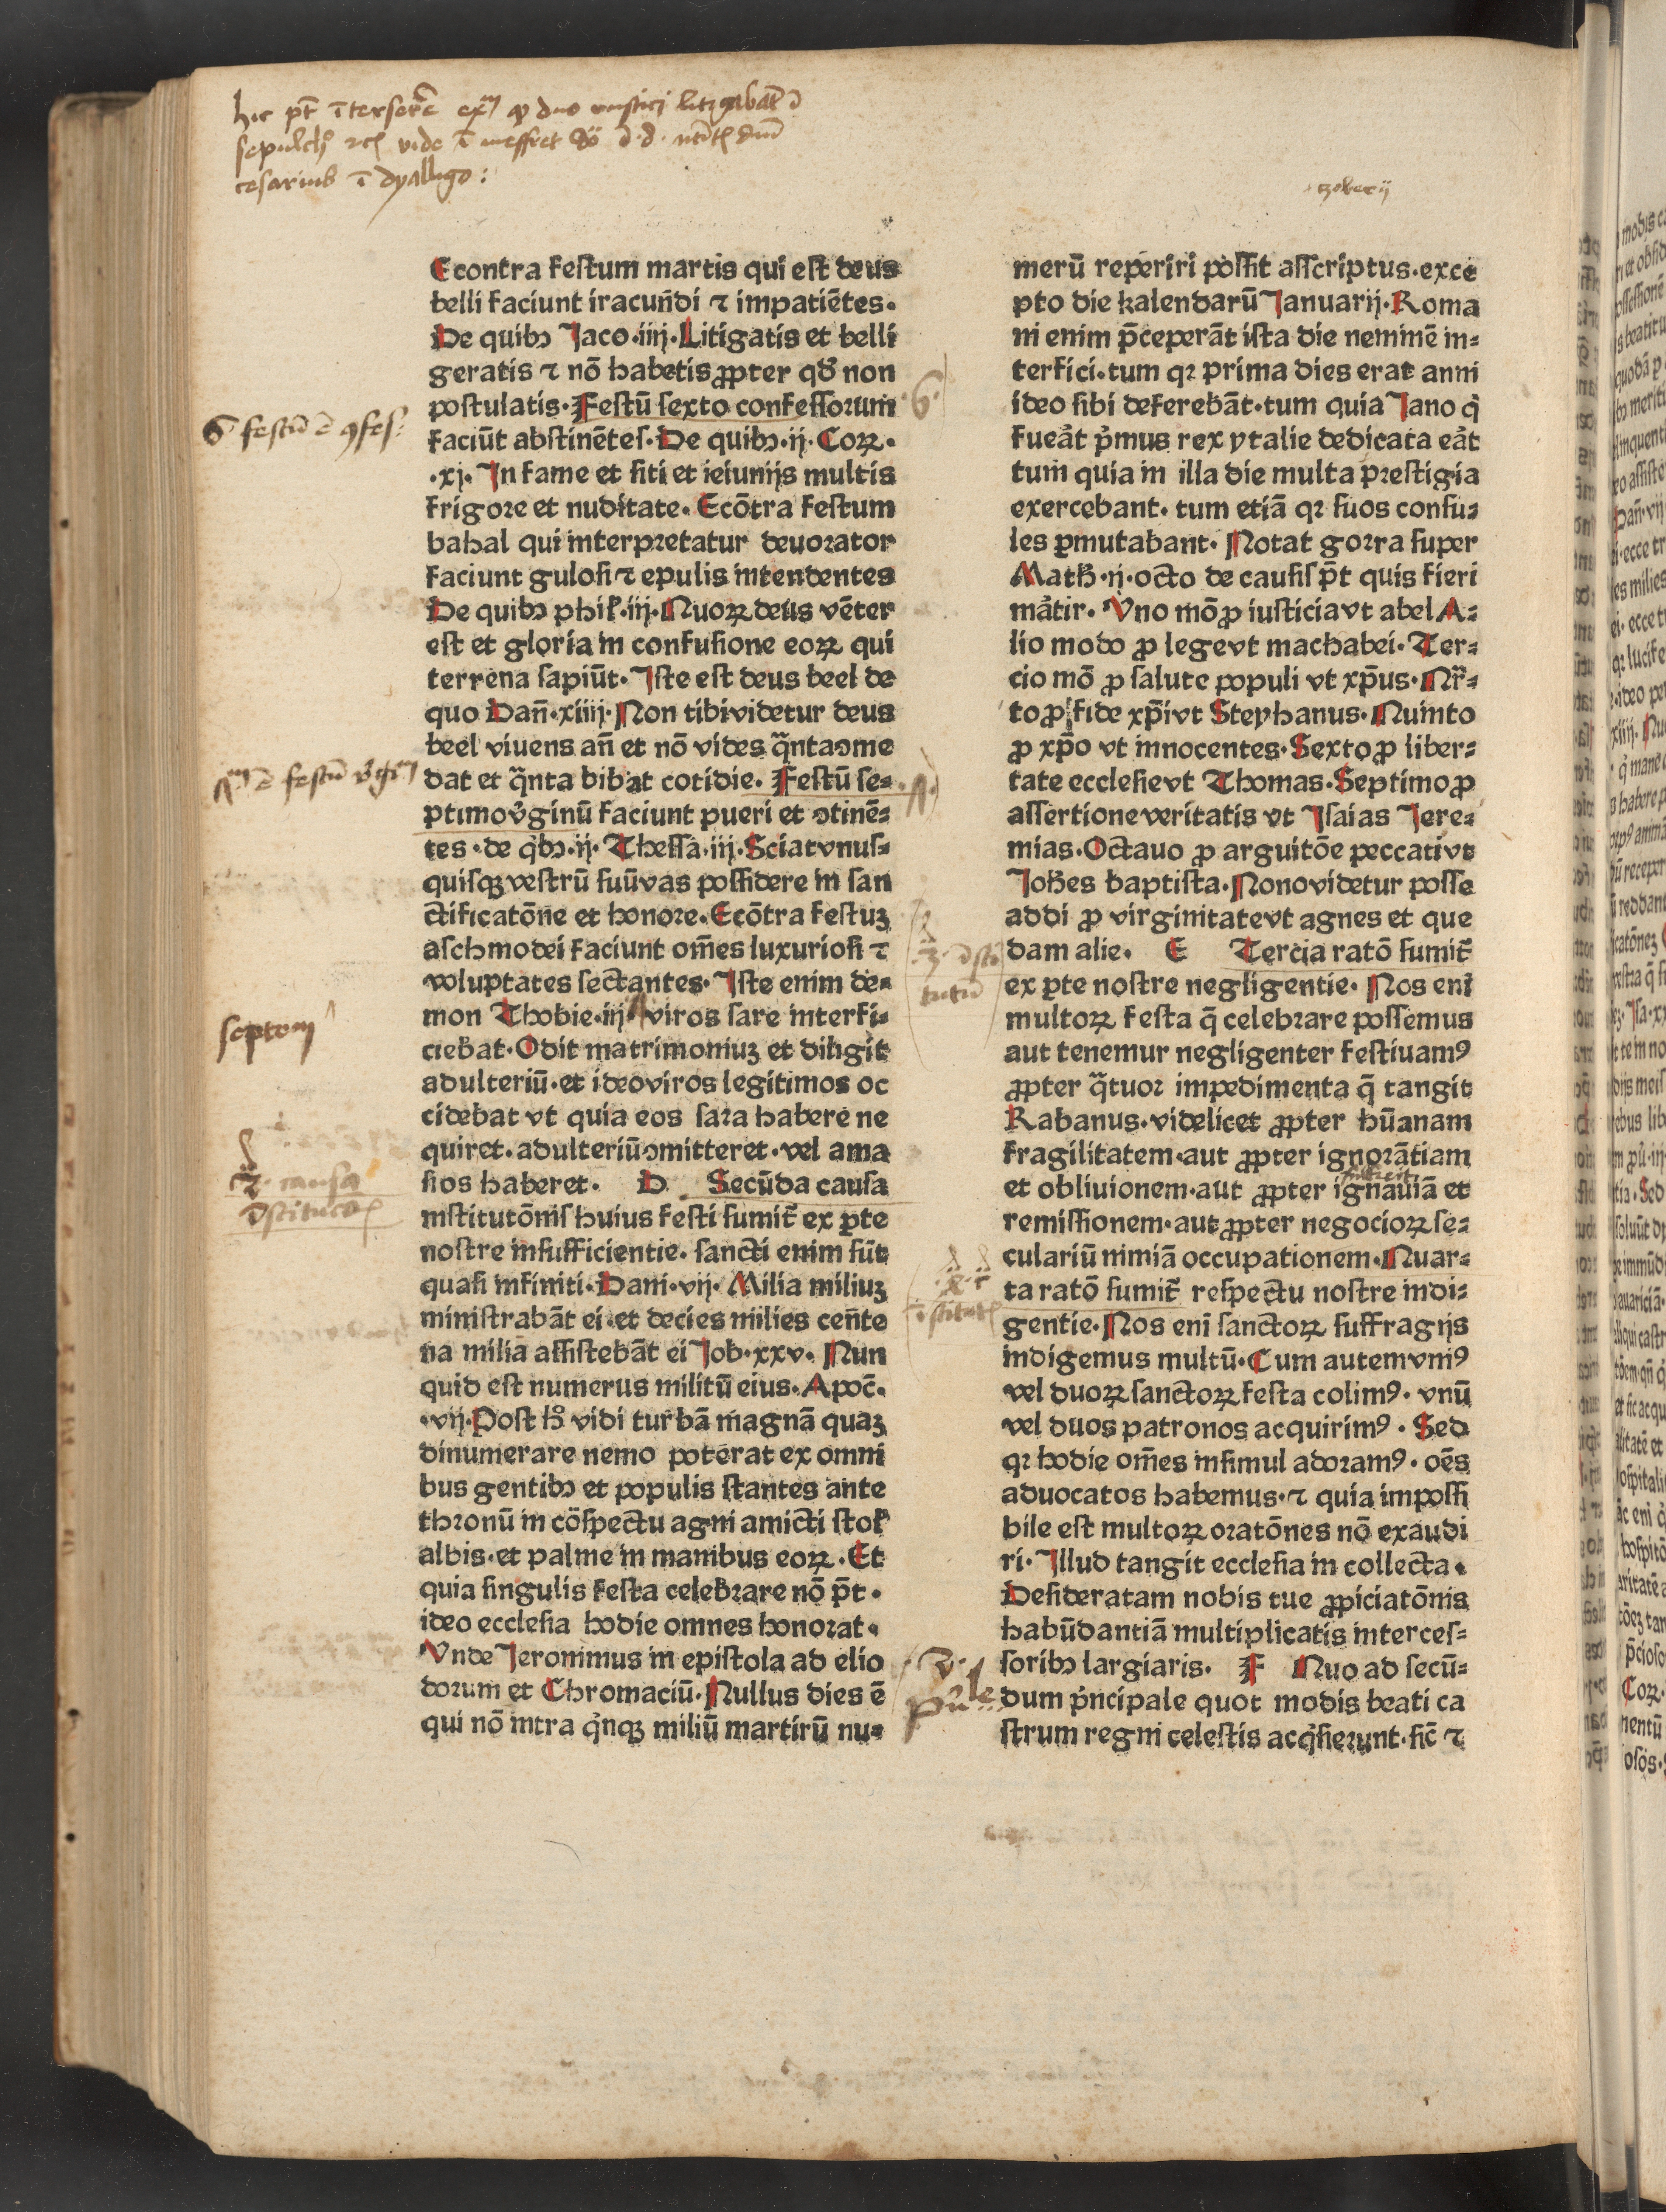 hic pt̄ ītersere ex̄ ꝙ duo rustici litigabāt ꝺ
cesarius ī dyallogo:
Econtra festum martis qui est deus
belli faciunt iracun̄di ⁊ impatiētes.
De quibꝰ Jaco.iiij.Litigatis et belli
geratis ⁊ nō habetis ꝓpter qd̛ non
postulatis.Festū sexto confessorum
6 festū ē ꝯfes:
faciūt abstinētes.De quibꝰ.ij.Coꝝ.
.xj.In fame et siti et ieiunijs multis
frigore et nuditate.Ecōtra festum
bahal qui interpretatur deuorator
faciunt gulosi ⁊ epulis intendentes
De quibꝰ phil̛.iij.Quoꝝ deus vēter
est et gloria in confusione eoꝝ qui
terrena sapiūt.Iste est deus beel de
quo Dan̄.xiiij.Non tibi videtur deus
beel viuens an̄ et nō vides q̈nta ↄme
dat et q̈nta bibat cotidie.Festū se⸗
ptimo v̛ginū faciunt pueri et ↄtinē⸗
tes.de q̛bꝰ.ij.Thessa.iij.Sciat vnus⸗
quisqꝫ vestrū suū vas possidere in san
ctificatōne et honore.Ecōtra festuꝫ
aschmodei faciunt om̄es luxuriosi ⁊
voluptates sectantes.Iste enim de⸗
mon Thobie.iij. viros sare interfi⸗
septem
ciebat.Odit matrimoniuꝫ et diligit
adulteriū.et ideo viros legitimos oc
cidebat vt quia eos sara habere ne
quiret.adulteriū ↄmitteret.vel ama
sios haberet. D Secūda causa
2ᵃ causa
īstitucōis
institutōnis huius festi sumit̄ ex ꝑte
nostre insufficientie.sancti enim sūt
quasi infiniti.Dani.vij.Milia miliuꝫ
ministrabāt ei.et decies milies cen̄te
na milia assistebāt ei Job.xxv.Nun
quid est numerus militū eius.Apoc̄.
.vij.Post h̛ vidi turbā magnā quaꝫ
dinumerare nemo poterat ex omni
bus gentibꝰ et populis stantes ante
thronū in cōspectu agni amicti stol̛
albis.et palme in manibus eoꝝ.Et
quia singulis festa celebrare nō p̄t.
ideo ecclesia hodie omnes honorat.
Vnde Jeronimus in epistola ad elio
dorum et Chromaciū.Nullus dies ē
qui nō intra q̛nqꝫ miliū martirū nu⸗
merū reperiri possit asscriptus.exce
pto die kalendarū Januarij.Roma
ni enim p̄ceperāt ista die neminē in⸗
terfici.tum qꝛ prima dies erat anni
6.
ideo sibi deferebāt.tum quia Jano q̛
fuea̛t p̛mus rex ytalie dedicata ea̛t
tum quia in illa die multa prestigia
exercebant.tum etiā qꝛ suos consu⸗
les ꝑmutabant.Notat gorra super
Math̛.ij.octo de causis p̄t quis fieri
ma̛tir.Vno mō ꝓ iusticia vt abel A⸗
lio modo ꝓ lege vt machabei.Ter⸗
cio mō ꝓ salute populi vt xp̄us.Qr̄⸗
to ꝓ fide xp̄i vt Stephanus.Quinto
ꝓ xp̄o vt innocentes.Sexto ꝓ liber⸗
tate ecclesie vt Thomas.Septimo ꝓ
assertione veritatis vt Isaias Jere⸗
mias.Octauo ꝓ arguitōe peccati vt
Joh̄es baptista.Nono videtur posse
addi ꝓ virginitate vt agnes et que
dam alie. E Tercia ratō sumit̄
ex ꝑte nostre negligentie.Nos eni̅
multoꝝ festa q̄ celebrare possemus
aut tenemur negligenter festiuamꝰ
ꝓpter q̈tuor impedimenta q̄ tangit
Rabanus.videlicet ꝓpter hūanam
fragilitatem.aut ꝓpter ignorātiam
et obliuionem.aut ꝓpter ignauiā et
remissionem.aut ꝓpter negocioꝝ se⸗
culariū nimiā occupationem.Quar⸗
ta ratō sumit̄ respectu nostre indi⸗
gentie.Nos eni̅ sanctoꝝ suffragijs
indigemus multū.Cum autem vniꝰ
vel duoꝝ sanctoꝝ festa colimꝰ.vnū
vel duos patronos acquirimꝰ.Sed
qꝛ hodie om̄es insimul adoramꝰ.oēs
aduocatos habemus.⁊ quia impossi
bile est multoꝝ oratōnes nō exaudi
ri.Illud tangit ecclesia in collecta.
Desideratam nobis tue ꝓpiciatōnis
habūdantiā multiplicatis interces⸗
soribꝰ largiaris. F Quo ad secū⸗
dum p̛ncipale quot modis beati ca
strum regni celestis acq̛sierunt.sic̄ ⁊